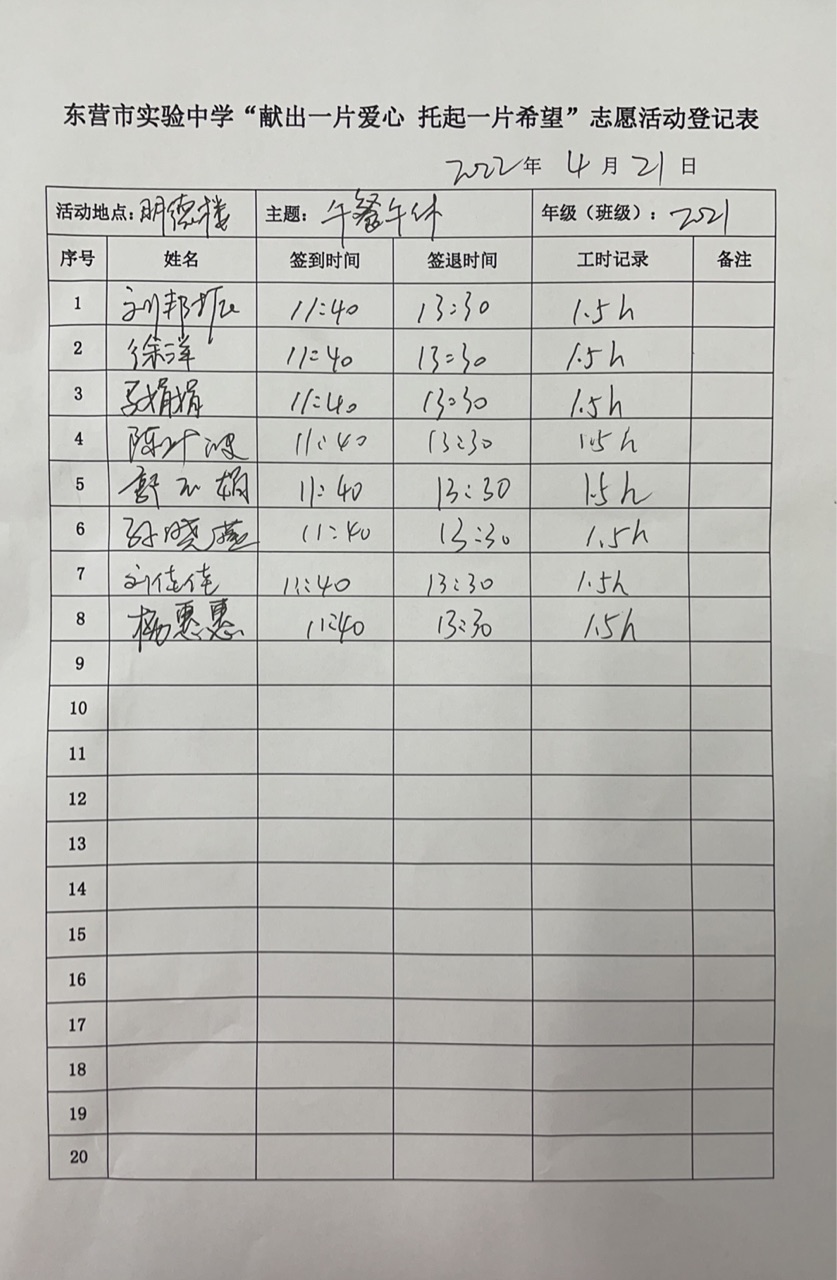 东营市实验中学“献出一片爱心 托起一片希望”志愿活动登记表
2022年 4 月 21 日
活动地点：明德楼 主题：午餐午休 年级（班级）：2021
序号 姓名 签到时间 签退时间 工时记录 备注
1 刘邦 11:40 13:30 1.5h
2 徐洋 11:40 13:30 1.5h
3 娟娟 11:40 13:30 1.5h
4 陈叶波 11:40 13:30 1.5h
5 娟 11:40 13:30 1.5h
6 孙晓燕 11:40 13:30 1.5h
7 刘佳佳 11:40 13:30 1.5h
8 杨惠惠 11:40 13:30 1.5h
9
10
11
12
13
14
15
16
17
18
19
20